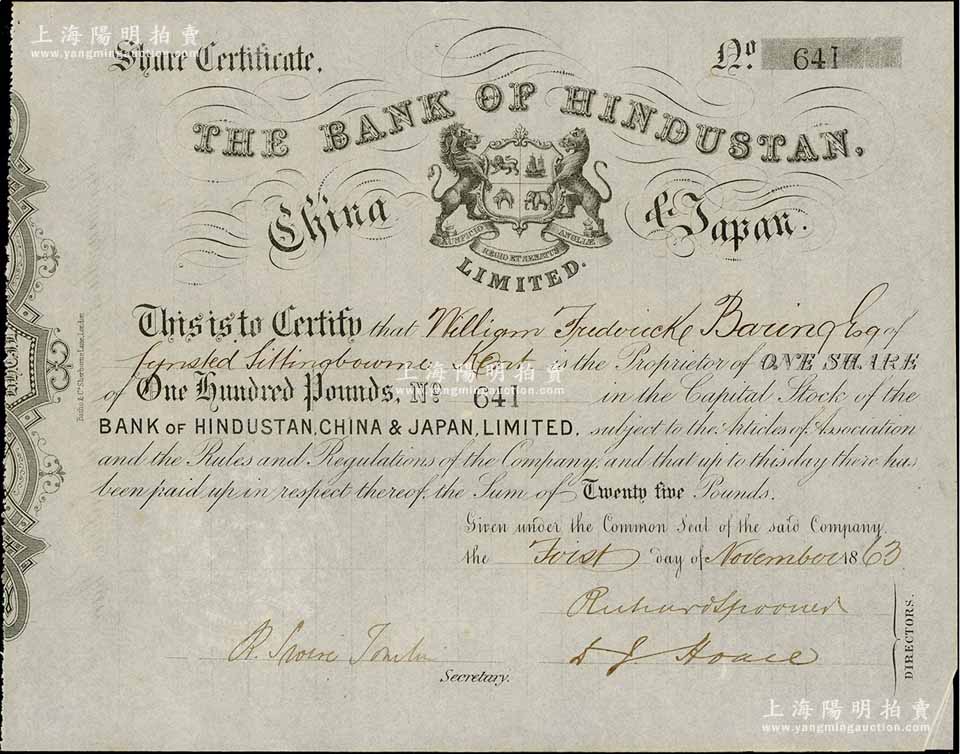 上海陽明拍賣
www.yangmingauction.com
Share Certificate.
No. 641
THE BANK OF HINDUSTAN,
China & Japan.
AUSPICIO REGIS ET SENATUS ANGLIÆ
LIMITED.
This is to Certify that William Frederick Baring Esq of
Sittingbourne Kent is the Proprietor of ONE SHARE
of One Hundred Pounds, No. 641 in the Capital Stock of the
BANK OF HINDUSTAN, CHINA & JAPAN, LIMITED. subject to the Articles of Association
and the Rules and Regulations of the Company, and that up to this day there has
been paid up in respect thereof, the Sum of Twenty five Pounds.
Given under the Common Seal of the said Company
the First day of November 1863
Richard Spooner
Secretary.
DIRECTORS.
上海陽明拍賣
www.yangmingauction.com
上海陽明拍賣
www.yangmingauction.com